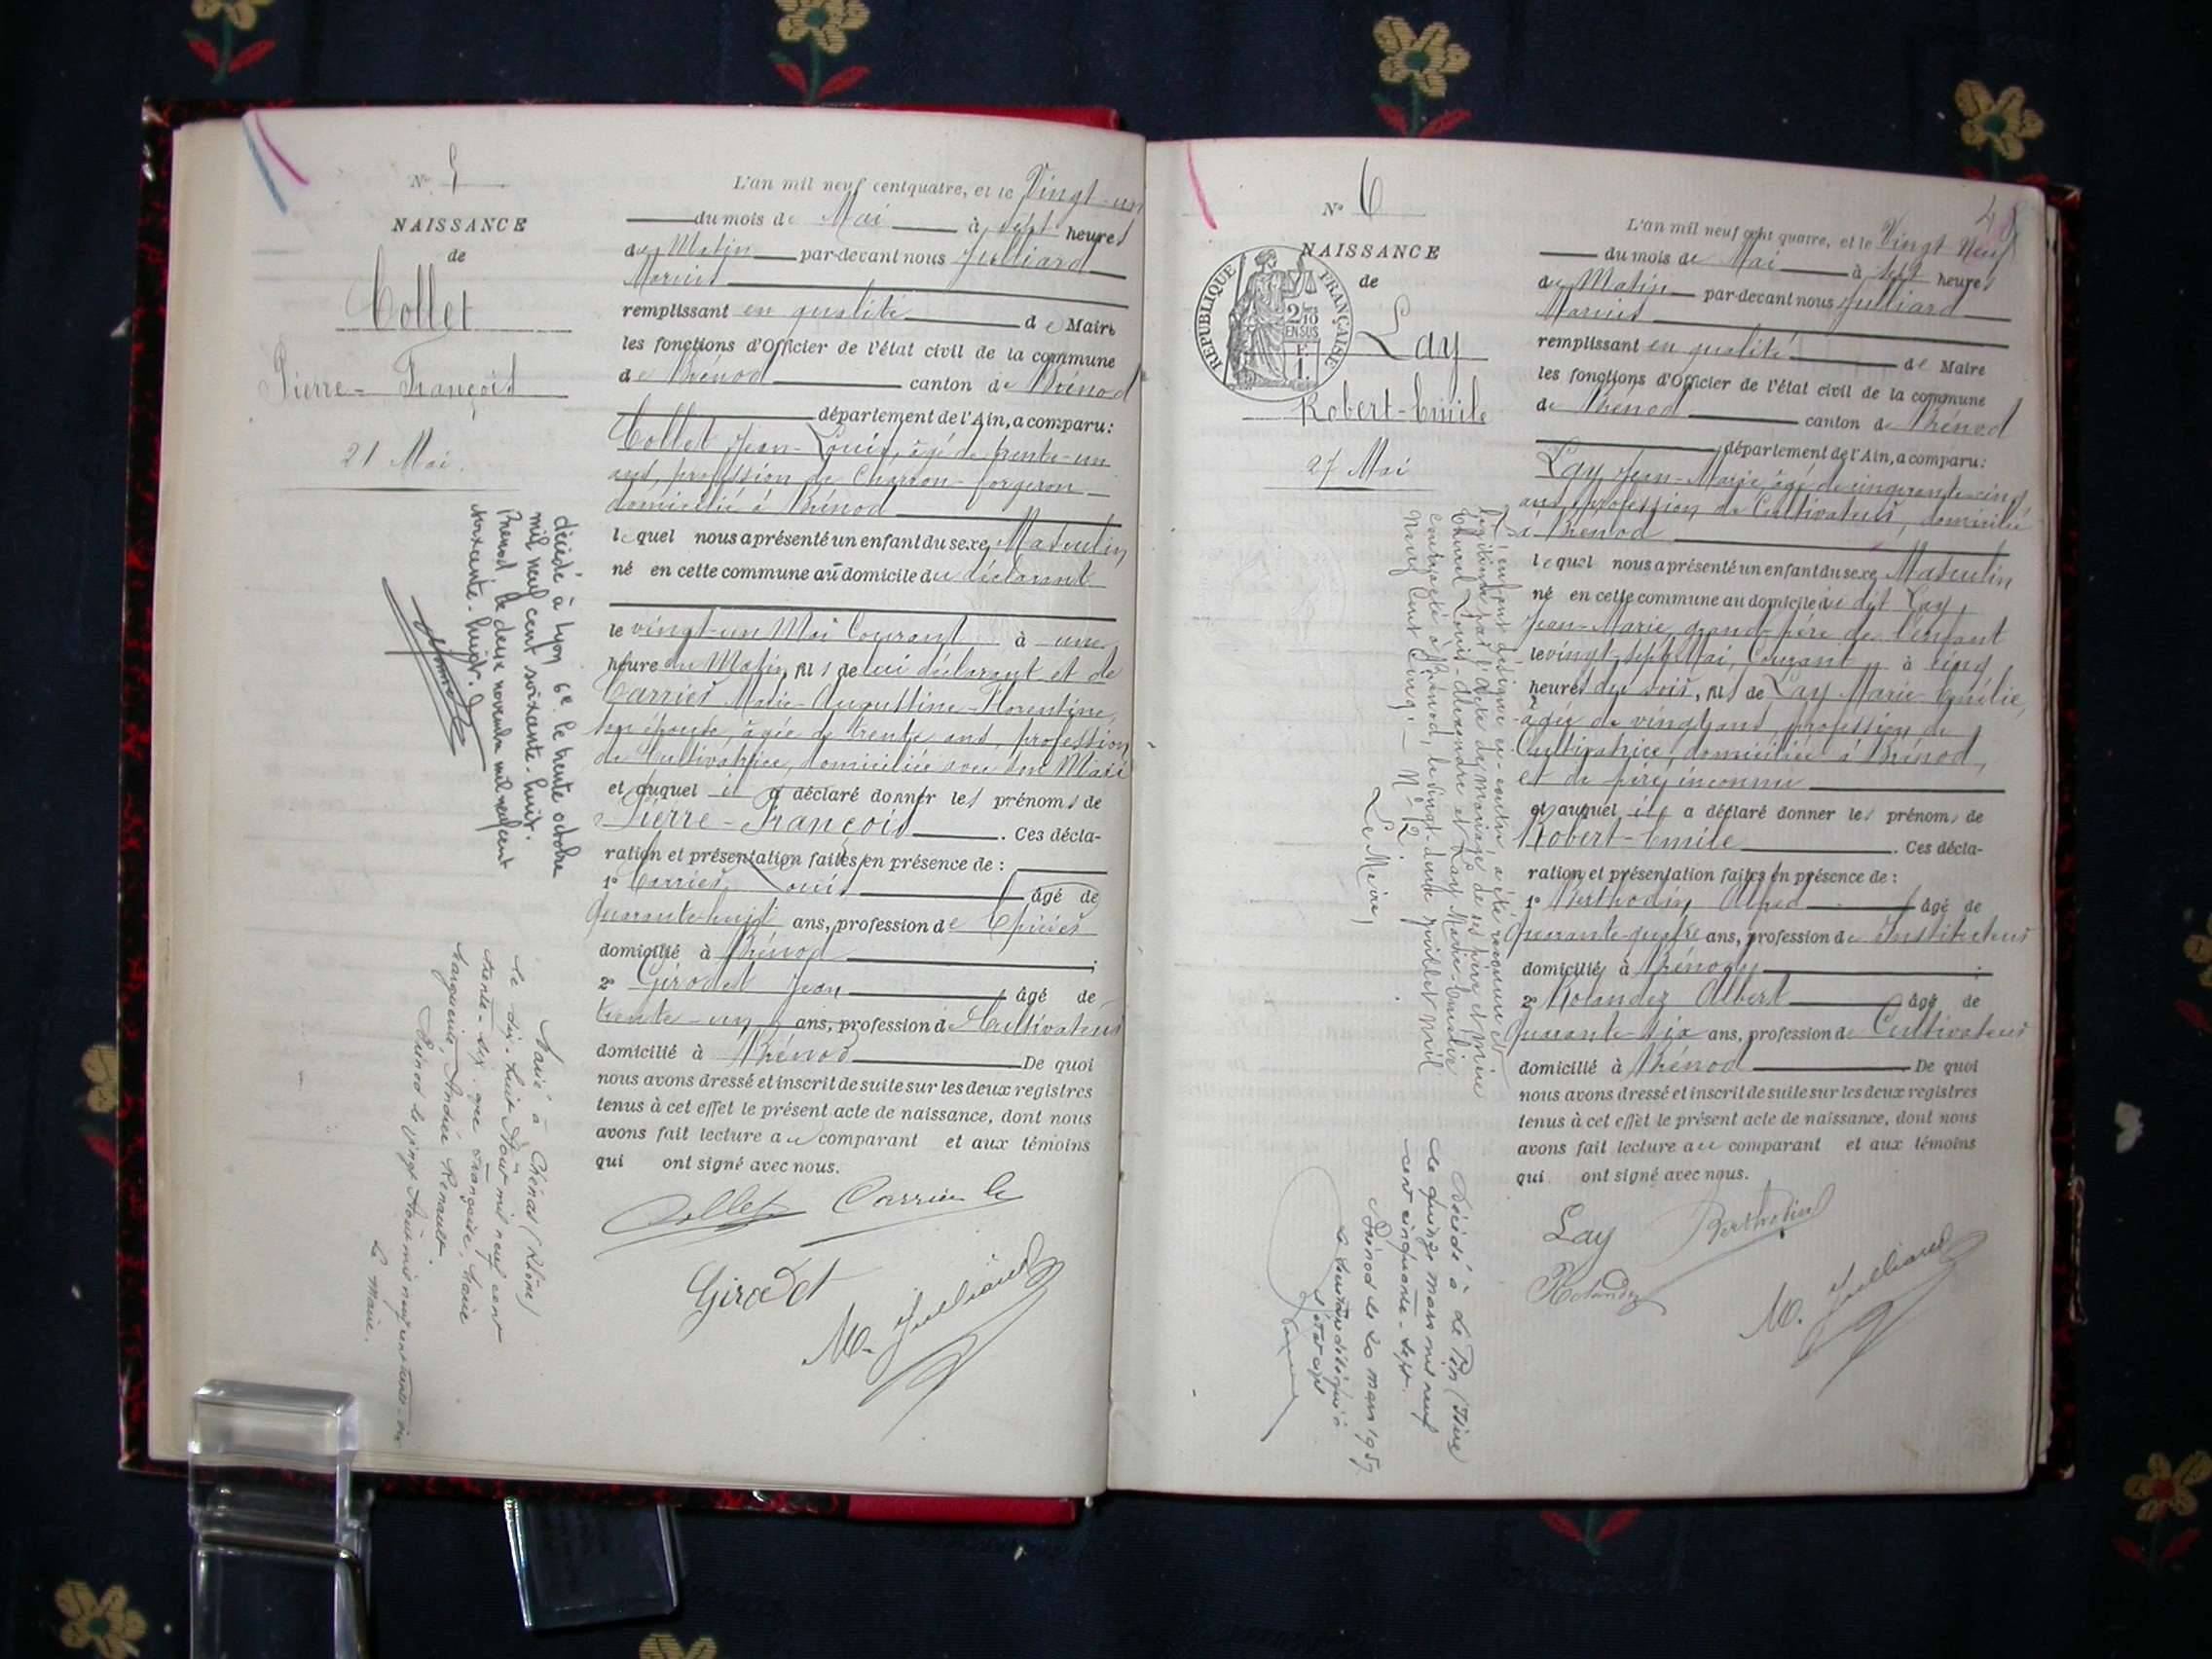 N° 5
NAISSANCE
de
Collet
Pierre-François
21 Mai.
L'an mil neuf cent quatre, et le Vingt-un
du mois de Mai à sept heures
du Matin par-devant nous Julliard
Marius
remplissant en qualité de Maire
les fonctions d'Officier de l'état civil de la commune
de Brénod canton de Brénod
département de l'Ain, a comparu:
Collet, Jean-Louis, âgé de trente-un
ans, profession de Charron-forgeron
domicilié à Brénod
lequel nous a présenté un enfant du sexe Masculin
né en cette commune au domicile du déclarant
le vingt-un Mai Courant à une
heure du Matin, fils de lui déclarant et de
Carrier Marie-Augustine-Florentine,
son épouse, âgée de trente ans, profession
de Cultivatrice, domiciliée avec son Mari
et auquel il a déclaré donner les prénoms de
Pierre-François. Ces décla-
ration et présentation faites en présence de :
1° Carrier, Louis âgé de
quarante-huit ans, profession de Epicier
domicilié à Brénod ;
2° Girodet Jean âgé de
trente-un ans, profession de Cultivateur
domicilié à Brénod De quoi
nous avons dressé et inscrit de suite sur les deux registres
tenus à cet effet le présent acte de naissance, dont nous
avons fait lecture au comparant et aux témoins
qui ont signé avec nous.
Collet Carrier L
Girodet
M. Julliard
décédé à Lyon 6e le trente octobre
mil neuf cent soixante-huit.
Brenod le deux novembre mil neuf cent
soixante-huit.
Marié à Chénas (Rhône)
le dix-huit Août mil neuf cent
trente-six avec Françoise, Marie
Marguerite, Andrée Renault.
Brénod le vingt Août mil neuf cent trente-six
Le Maire.
N° 6
NAISSANCE
de
RÉPUBLIQUE FRANÇAISE
2/10
EN SUS
F.
1.
Lay
Robert-Emile
27 Mai
48
L'an mil neuf cent quatre, et le Vingt Neuf
du mois de Mai à sept heures
du Matin par-devant nous Julliard
Marius
remplissant en qualité de Maire
les fonctions d'Officier de l'état civil de la commune
de Brénod canton de Brénod
département de l'Ain, a comparu:
Lay, Jean-Marie âgé de cinquante-cinq
ans, profession de Cultivateur, domicilié
à Brénod
lequel nous a présenté un enfant du sexe Masculin
né en cette commune au domicile du dit Lay,
Jean-Marie, grand-père de l'enfant
le vingt-sept Mai, Courant à cinq
heures du soir, fils de Lay Marie-Emélie,
âgée de vingt ans, profession de
Cultivatrice, domiciliée à Brénod,
et de père inconnu
et auquel il a déclaré donner les prénoms de
Robert-Emile. Ces décla-
ration et présentation faites en présence de :
1° Berthodin, Alfred âgé de
quarante-quatre ans, profession de Instituteur
domicilié à Brénod ;
2° Rolandez Albert âgé de
quarante-six ans, profession de Cultivateur
domicilié à Brénod De quoi
nous avons dressé et inscrit de suite sur les deux registres
tenus à cet effet le présent acte de naissance, dont nous
avons fait lecture au comparant et aux témoins
qui ont signé avec nous.
Lay Berthodin
Rolandez
M. Julliard
L'enfant désigné ci-contre, a été reconnu et
légitimé par l'acte de mariage de ses père et mère
Louis-Alexandre et Lay Marie-Emélie
contracté à Brénod, le vingt-deux juillet mil
neuf cent cinq. N° 2.
Le Maire,
Décédé à Le Pin (Isère)
le quinze mars mil neuf
cent cinquante-sept.
Brénod le 20 mars 1957